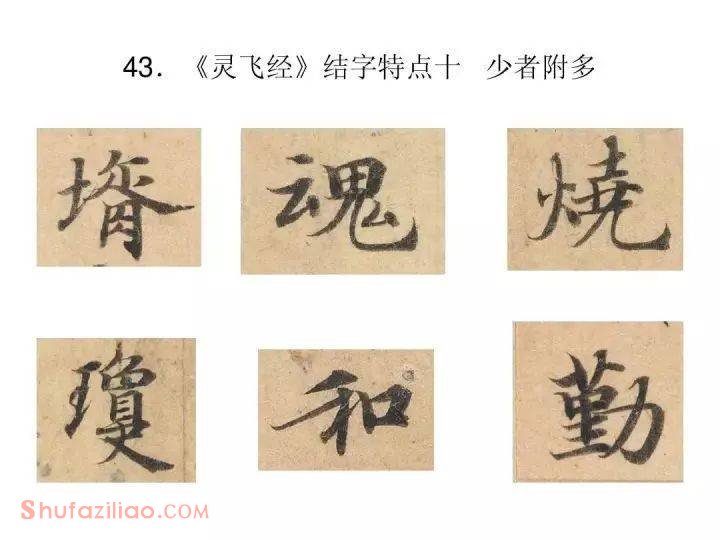 43．《灵飞经》结字特点十 少者附多
壻 魂 燒
瓊 和 勤
Shufaziliao.COM